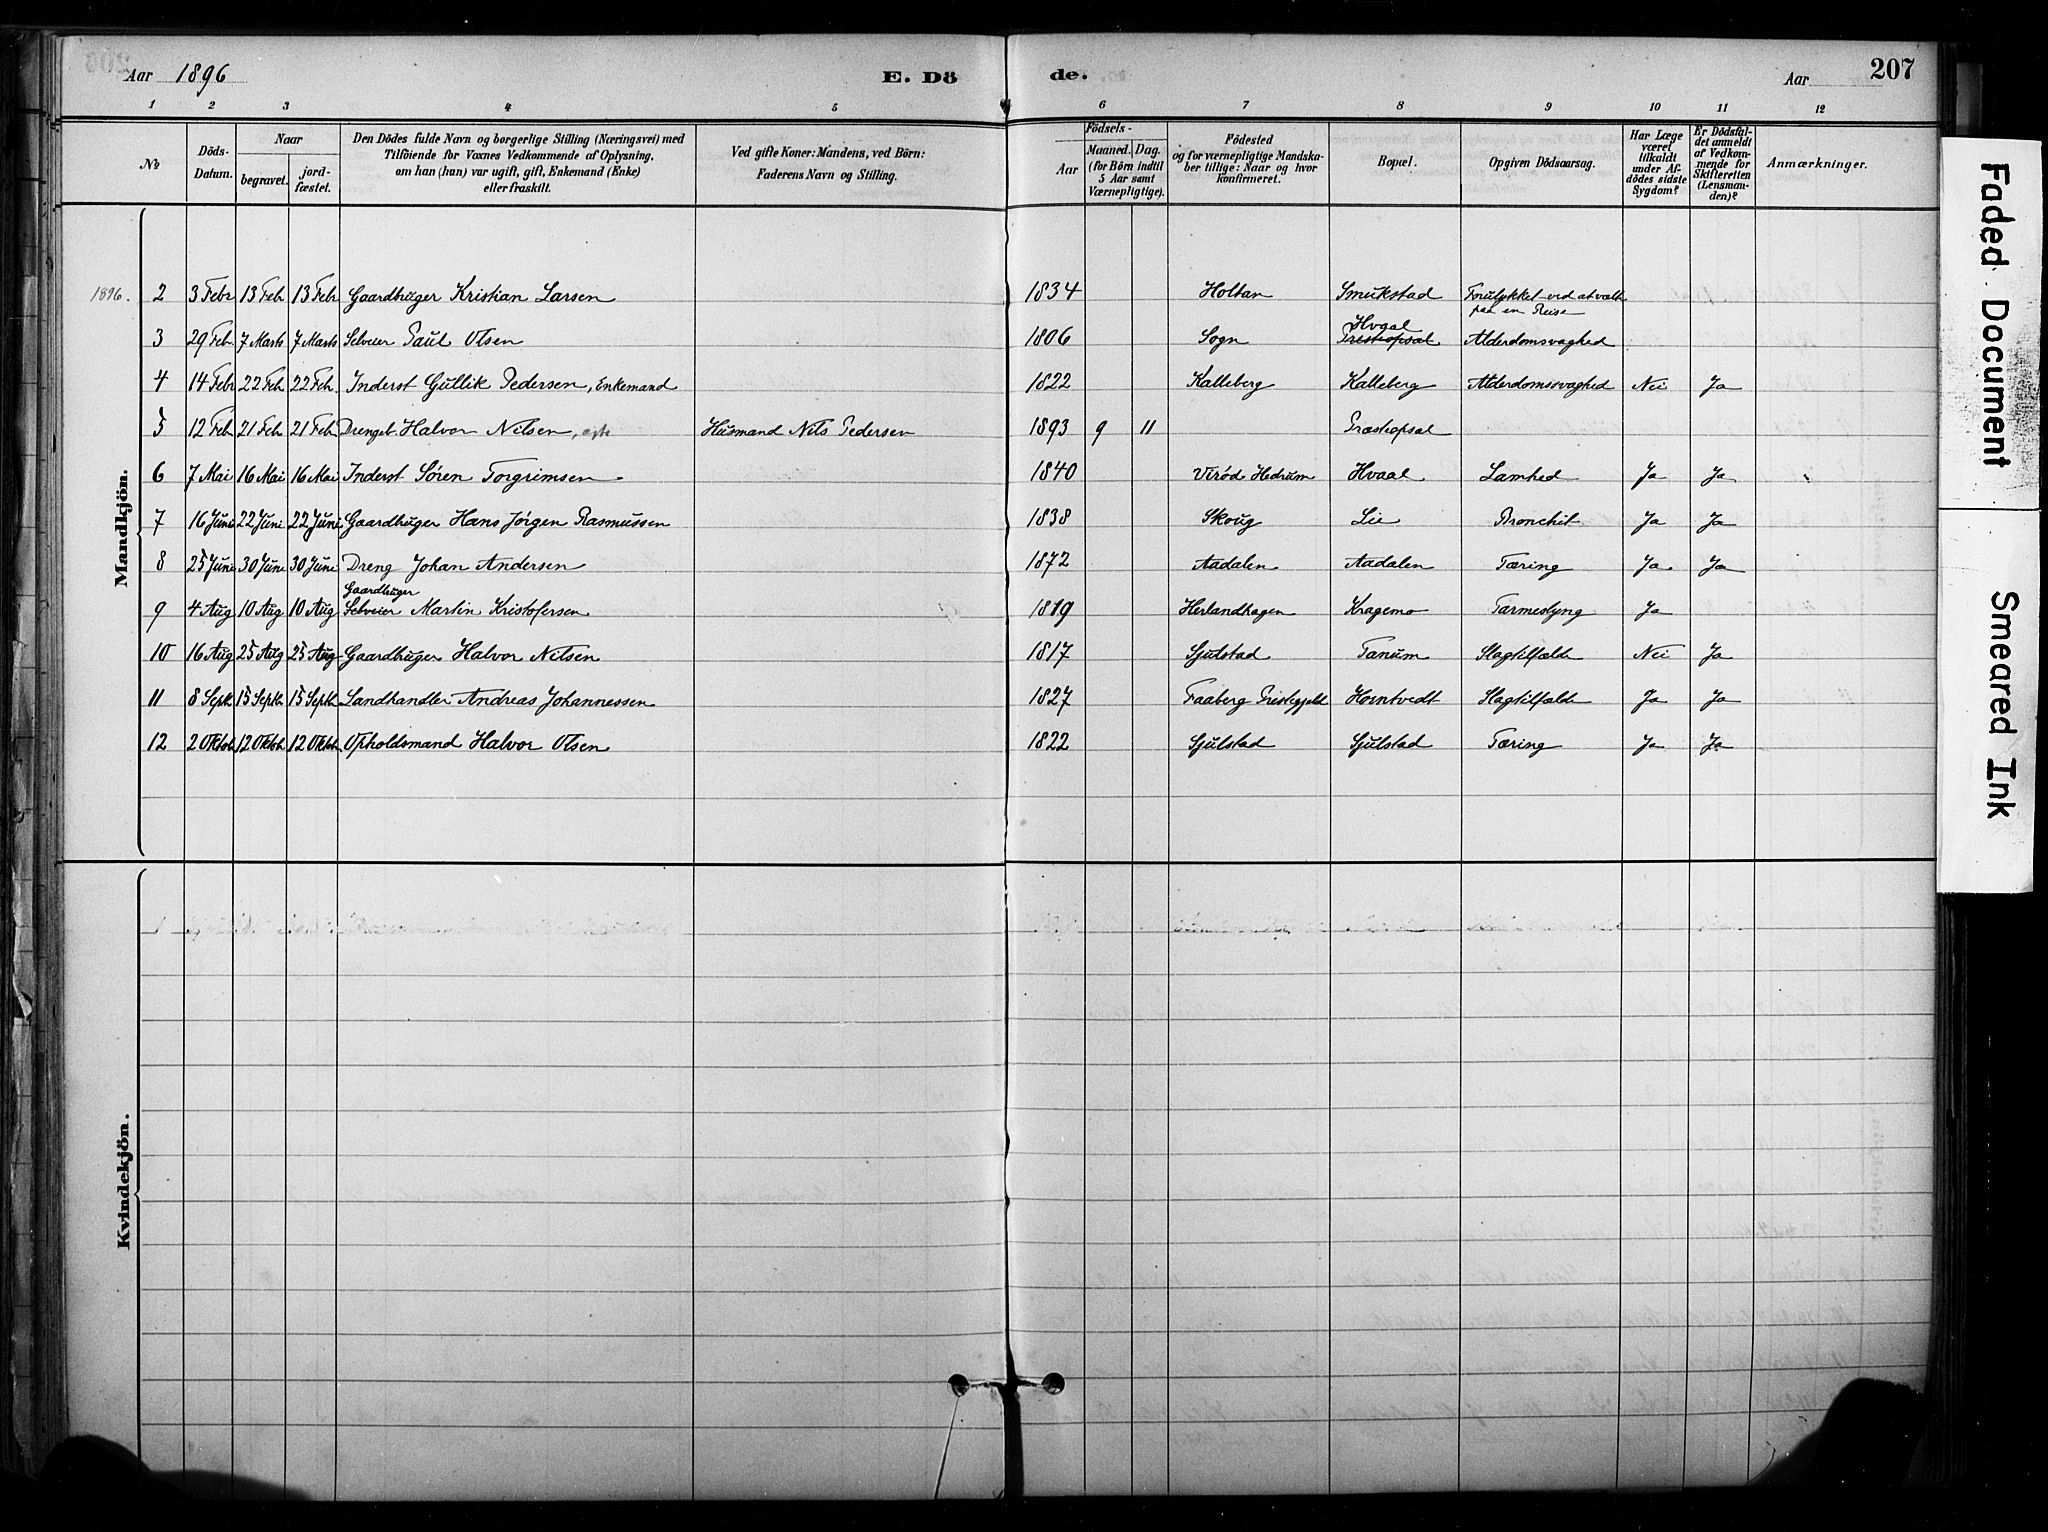 Aar 1896
E. Dö
de.
Aar
207
1 2 3 4 5 6 7 8 9 10 11 12
No
Döds-Datum.
Naar
begravet.
jord-fæstet.
Den Dödes fulde Navn og borgerlige Stilling (Næringsvei) med
Tilföiende for Voxnes Vedkommende af Oplysning,
om han (hun) var ugift, gift, Enkemand (Enke)
eller fraskilt.
Ved gifte Koner: Mandens, ved Börn:
Faderens Navn og Stilling.
Födsels-
Aar
Maaned. Dag.
(for Börn indtil
5 Aar samt
Værnepligtige).
Födested
og for værnepligtige Mandska-
ber tillige: Naar og hvor
konfirmeret.
Bopæl.
Opgiven Dödsaarsag.
Har Læge
været
tilkaldt
under Af-
dödes sidste
Sygdom?
Er Dödsfal-
det anmeldt
af Vedkom-
mende for
Skifteretten
(Lensman-
den)?
Anmærkninger.
Mandkjön.
1896. 2 3 Febr 13 Feb 13 Feb Gaardbruger Kristian Larsen 1834 Holtan Smukstad Forulykket ved at vælte
paa en Reise
Hvaal
3 29 Feb. 7 Marts 7 Marts Selveier Paul Olsen 1806 Sogn Presteopsal Alderdomsvaghed
4 14 Febr 22 Feb 22 Feb. Inderst Gullik Pedersen, Enkemand 1822 Kalleberg Kalleberg Alderdomssvaghed Nei Ja
5 12 Feb 21 Feb 21 Feb Drengeb. Halvor Nilsen, Husmand Nils Pedersen 1893 9 11 Præsteopsal
6 7 Mai 16 Mai 16 Mai Inderst Sören Torgrimsen 1840 Virød Hedrum Hvaal Lamhed Ja Ja
7 16 Juni 22 Juni 22 Juni Gaardbruger Hans Jörgen Rasmussen 1838 Skoug Lie Bronchit Ja Ja
8 25 Juni 30 Juni 30 Juni Dreng Johan Andersen 1872 Aadalen Aadalen Tæring Ja Ja
Gaardbruger
9 4 Aug 10 Aug 10 Aug Selveier Martin Kristofersen 1819 Herlandhagen Kragemo Tarmeslyng Ja
10 16 Aug 25 Aug 25 Aug Gaardbruger Halvor Nilsen 1817 Sjulstad Tanum Slagtilfælde Nei Ja
11 8 Sept 15 Septb. 15 Septb. Landhandler Andreas Johannessen 1827 Faaberg Prestegjeld Horntvedt Slagtilfælde Ja Ja
12 2 Oktob. 12 Oktob. 12 Oktob. Opholdsmand Halvor Olsen 1822 Sjulstad Sjulstad Tæring Ja Ja
Kvindekjön.
Faded Document
Smeared Ink